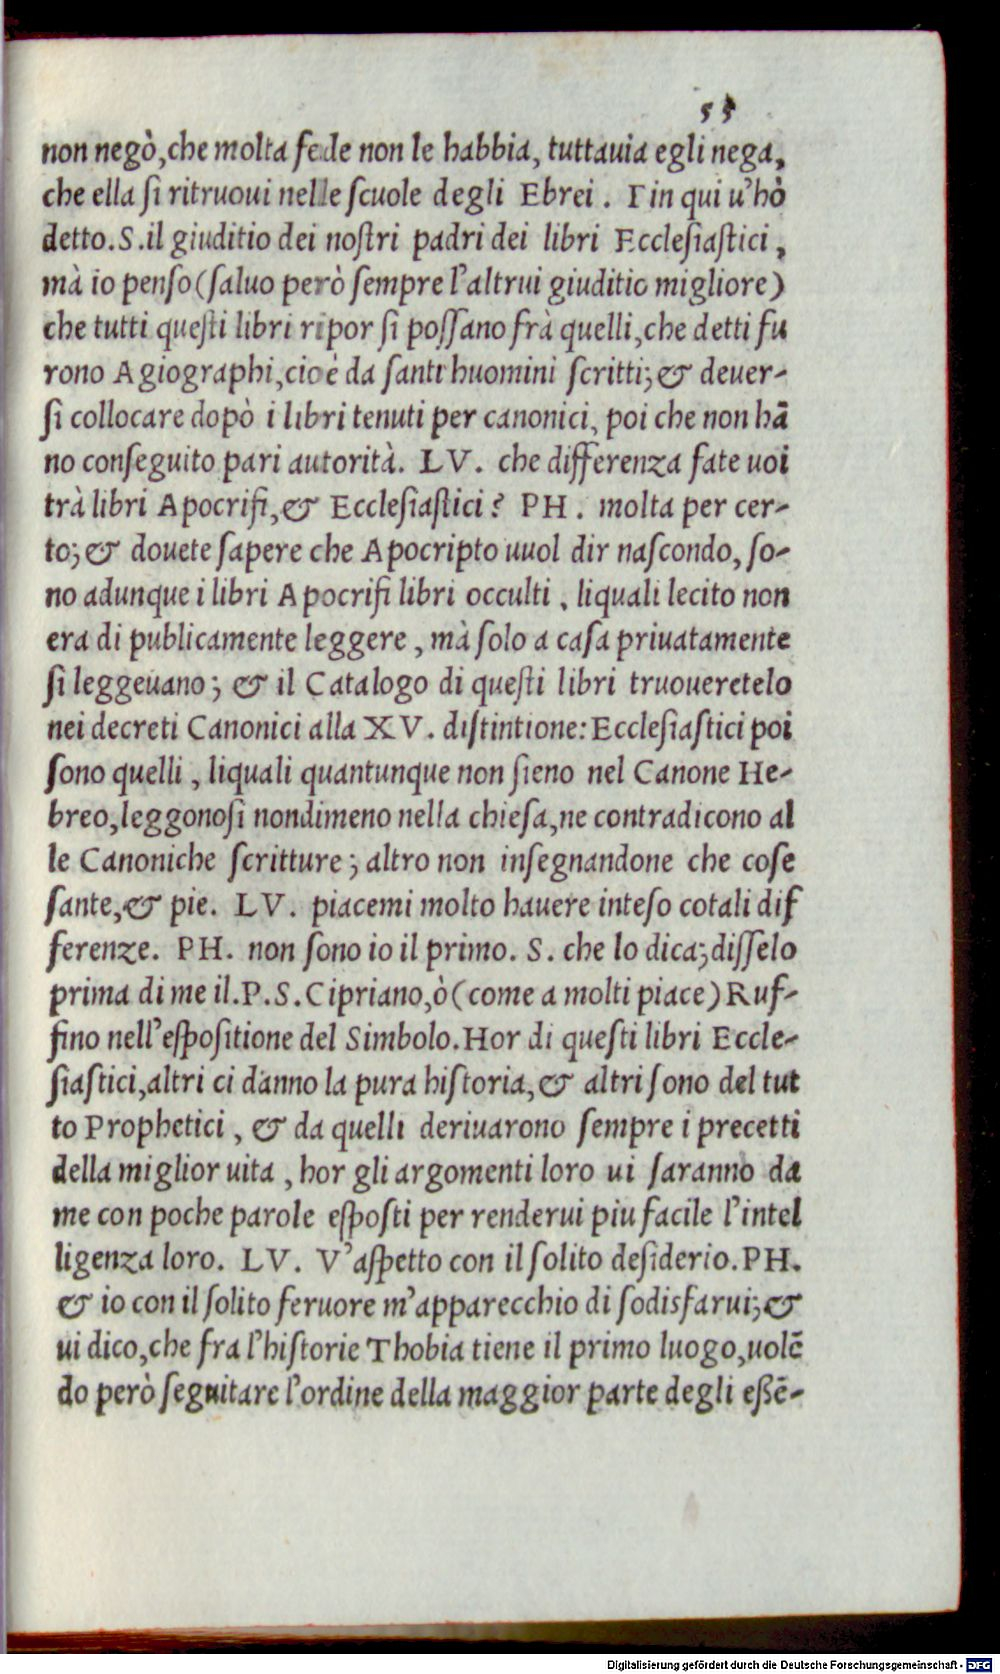 55
non negò, che molta fede non le habbia, tuttauia egli nega,
che ella ſi ritruoui nelle ſcuole degli Ebrei. Fin qui u'hò
detto. S. il giuditio dei noſtri padri dei libri Eccleſiaſtici,
mà io penſo (ſaluo però ſempre l'altrui giuditio migliore)
che tutti queſti libri ripor ſi poſſano frà quelli, che detti fu
rono Agiographi, cioè da ſanti huomini ſcritti; & deuer-
ſi collocare dopò i libri tenuti per canonici, poi che non hā
no conſeguito pari autorità. LV. che differenza fate uoi
trà libri Apocrifi, & Eccleſiaſtici? PH. molta per cer-
to; & douete ſapere che Apocripto uuol dir naſcondo, ſo-
no adunque i libri Apocrifi libri occulti, liquali lecito non
era di publicamente leggere, mà ſolo a caſa priuatamente
ſi leggeuano; & il Catalogo di queſti libri truoueretelo
nei decreti Canonici alla XV. diſtintione: Eccleſiaſtici poi
ſono quelli, liquali quantunque non ſieno nel Canone He-
breo, leggonoſi nondimeno nella chieſa, ne contradicono al
le Canoniche ſcritture; altro non inſegnandone che coſe
ſante, & pie. LV. piacemi molto hauere inteſo cotali dif
ferenze. PH. non ſono io il primo. S. che lo dica; diſſelo
prima di me il. P. S. Cipriano, ò (come a molti piace) Ruf-
fino nell'eſpoſitione del Simbolo. Hor di queſti libri Eccle-
ſiaſtici, altri ci danno la pura hiſtoria, & altri ſono del tut
to Prophetici, & da quelli deriuarono ſempre i precetti
della miglior uita, hor gli argomenti loro ui ſaranno da
me con poche parole eſpoſti per renderui piu facile l'intel
ligenza loro. LV. V'aſpetto con il ſolito deſiderio. PH.
& io con il ſolito feruore m'apparecchio di ſodisfarui; &
ui dico, che fra l'hiſtorie Thobia tiene il primo luogo, uolē
do però ſeguitare l'ordine della maggior parte degli eßē-
Digitalisierung gefördert durch die Deutsche Forschungsgemeinschaft - DFG